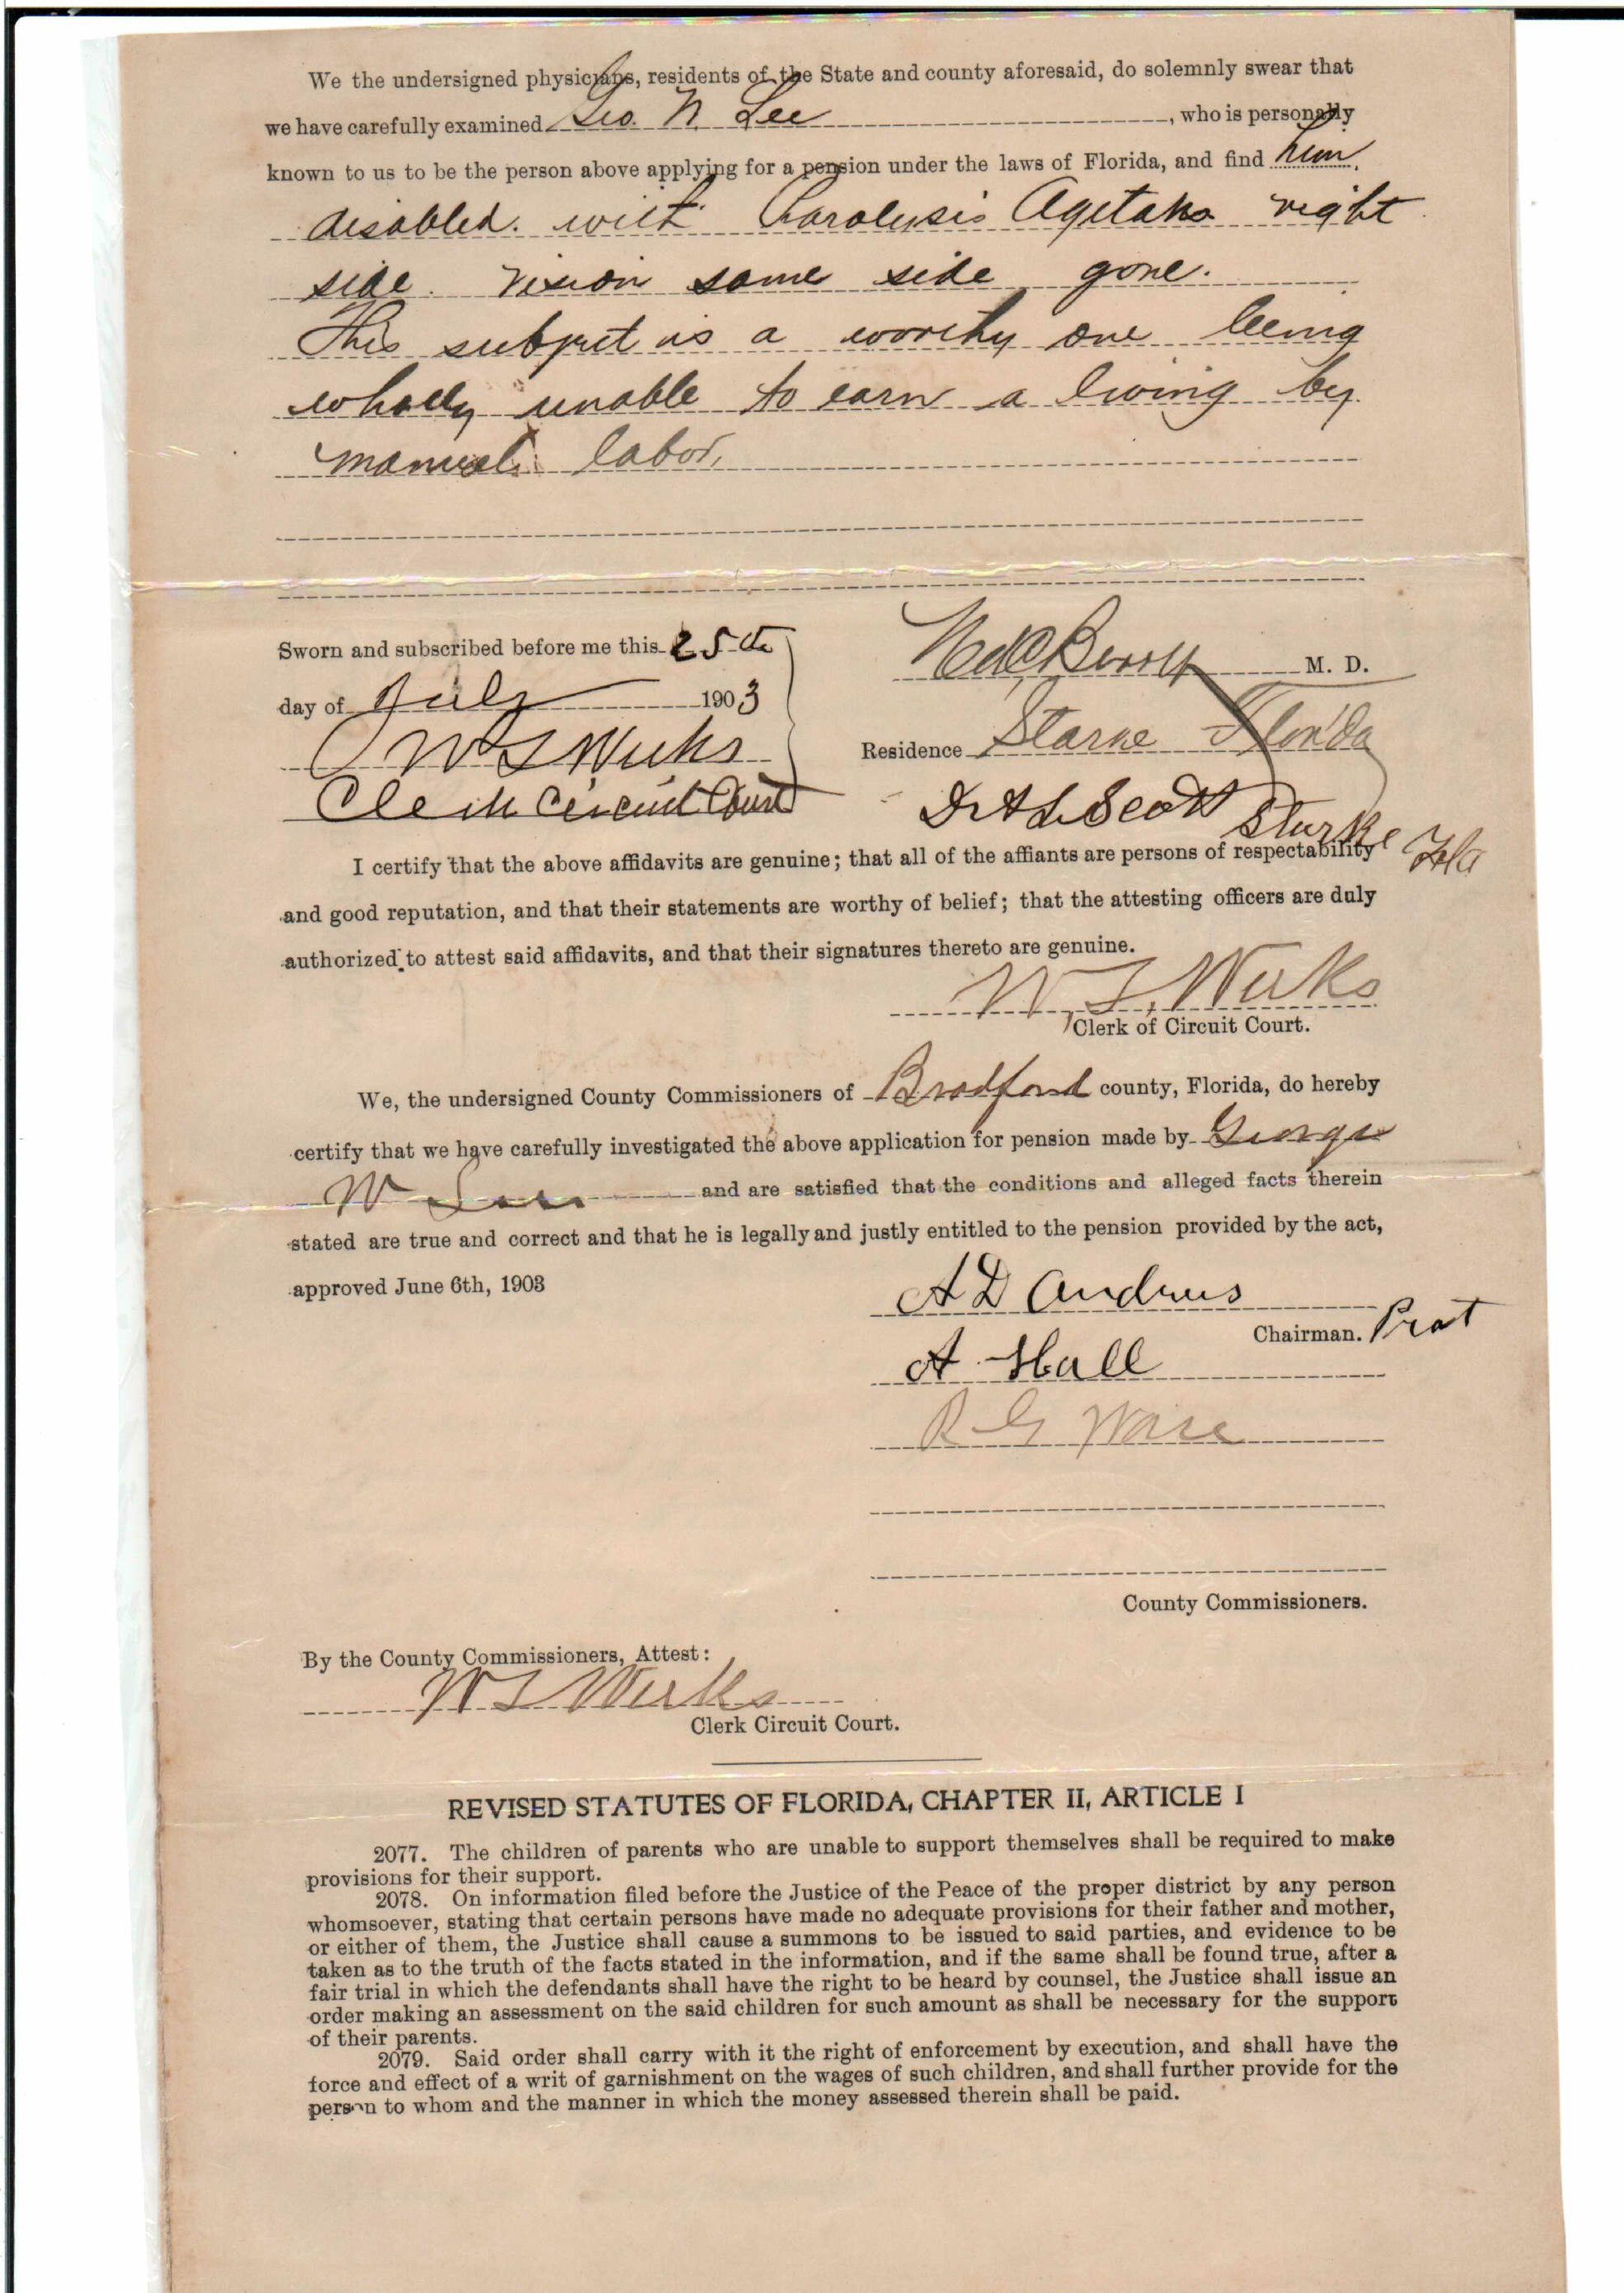 We the undersigned physicians, residents of the State and county aforesaid, do solemnly swear that
we have carefully examined Geo. W. Lee, who is personally
known to us to be the person above applying for a pension under the laws of Florida, and find him
disabled. with Paralysis Agitans right
side. Vision same side gone.
This subject is a worthy one being
wholly unable to earn a living by
manual labor,
Sworn and subscribed before me this 25th
day of July 1903
W S Weeks
Clerk Circuit Court
M. D.
Residence Starke Florida
Dr A L Scott Starke Fla
I certify that the above affidavits are genuine; that all of the affiants are persons of respectability
and good reputation, and that their statements are worthy of belief; that the attesting officers are duly
authorized to attest said affidavits, and that their signatures thereto are genuine.
W. S. Weeks
Clerk of Circuit Court.
We, the undersigned County Commissioners of Bradford county, Florida, do hereby
certify that we have carefully investigated the above application for pension made by George
W Lee and are satisfied that the conditions and alleged facts therein
stated are true and correct and that he is legally and justly entitled to the pension provided by the act,
approved June 6th, 1903
A D Andrews
Chairman. Prot
A Hall
R G Ware
County Commissioners.
By the County Commissioners, Attest:
W S Weeks
Clerk Circuit Court.
REVISED STATUTES OF FLORIDA, CHAPTER II, ARTICLE I
2077. The children of parents who are unable to support themselves shall be required to make
provisions for their support.
2078. On information filed before the Justice of the Peace of the proper district by any person
whomsoever, stating that certain persons have made no adequate provisions for their father and mother,
or either of them, the Justice shall cause a summons to be issued to said parties, and evidence to be
taken as to the truth of the facts stated in the information, and if the same shall be found true, after a
fair trial in which the defendants shall have the right to be heard by counsel, the Justice shall issue an
order making an assessment on the said children for such amount as shall be necessary for the support
of their parents.
2079. Said order shall carry with it the right of enforcement by execution, and shall have the
force and effect of a writ of garnishment on the wages of such children, and shall further provide for the
person to whom and the manner in which the money assessed therein shall be paid.